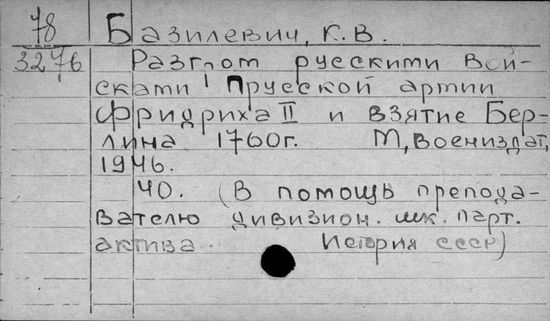 78 Базилевич, К. В.
3276 Разгром русскими вой-
сками Прусской армии
Фридриха II и взятие Бер-
лина 1760г. М, Воениздат,
1946.
40. (В помощь препода-
вателю дивизион. шк. парт.
актива. История СССР)